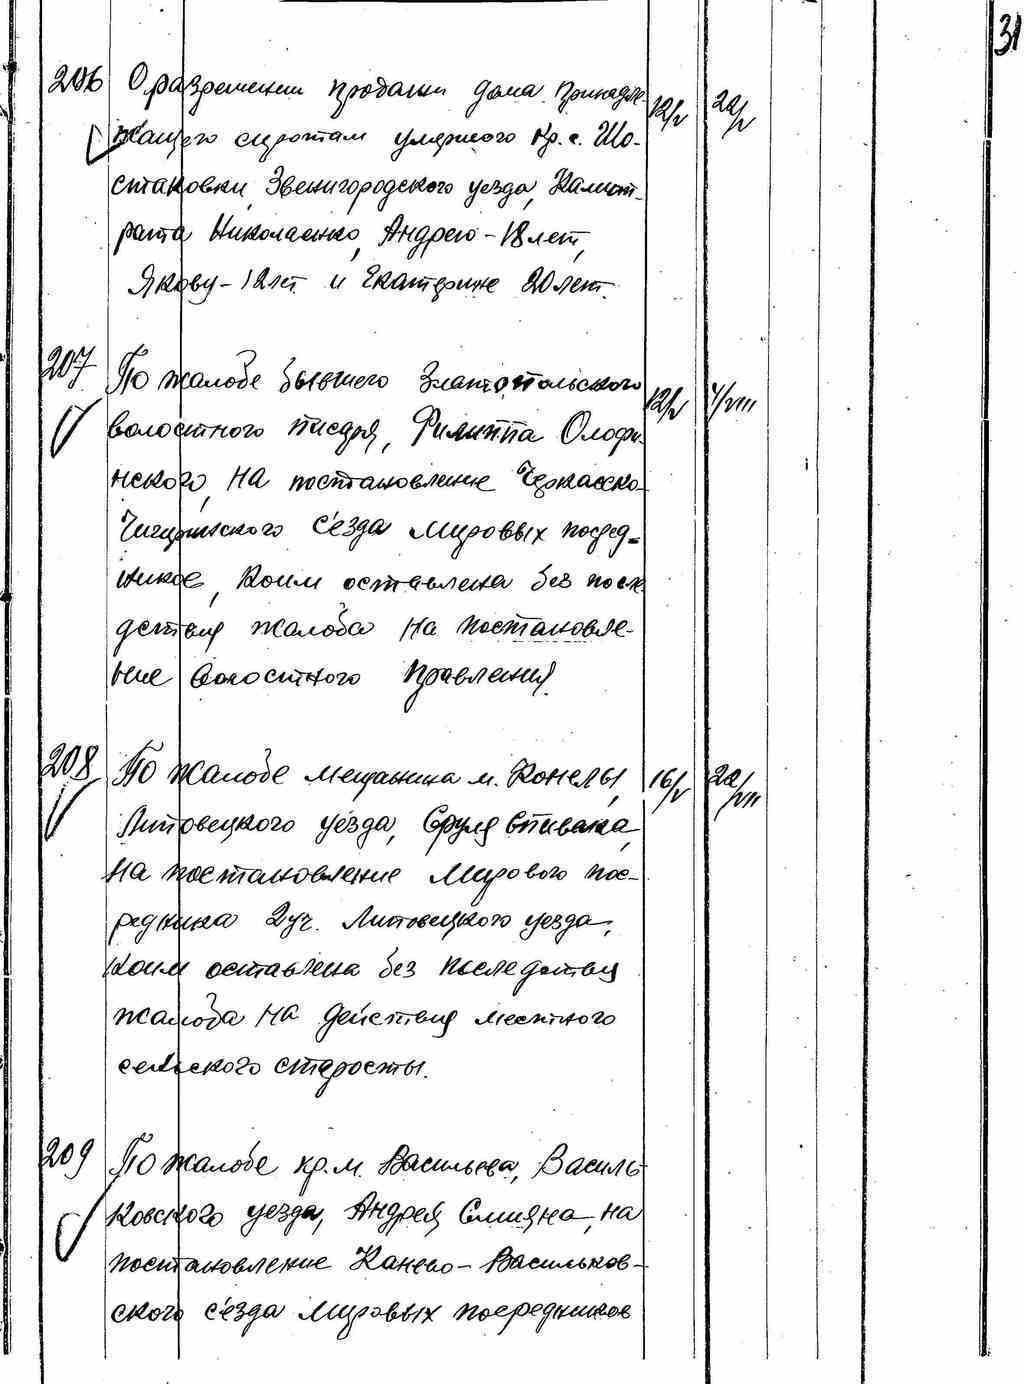 31
206 О разрешении продажи дома принадле- 12/V 22/V
жащего сиротам умершего кр. с. Шо-
стаковки, Звенигородского уезда, Калист-
рата Николаенко, Андрею - 18 лет,
Якову - 12 лет. и Екатерине 20 лет.
207 По жалобе бывшего Златопольского 12/V 4/VIII
волостного писаря, Филиппа Олофи-
нского, на постановление Черкасско-
Чигиринского с'езда мировых посред-
ников, коим оставлена без послед-
дствия жалоба на постановле-
ние волостного правления.
208 По жалобе мещанина м. Конелы, 16/V 22/VII
Липовецкого уезда, Сруля Спивака,
на постановление мирового пос-
редника 2 уч. Липовецкого уезда,
коим оставлена без последствия
жалоба на действия местного
сельского старосты.
209 По жалобе кр. м. Васильева, Василь-
ковского уезда, Андрея Смияна, на
постановление Канево - Васильков-
ского с'езда мировых посредников